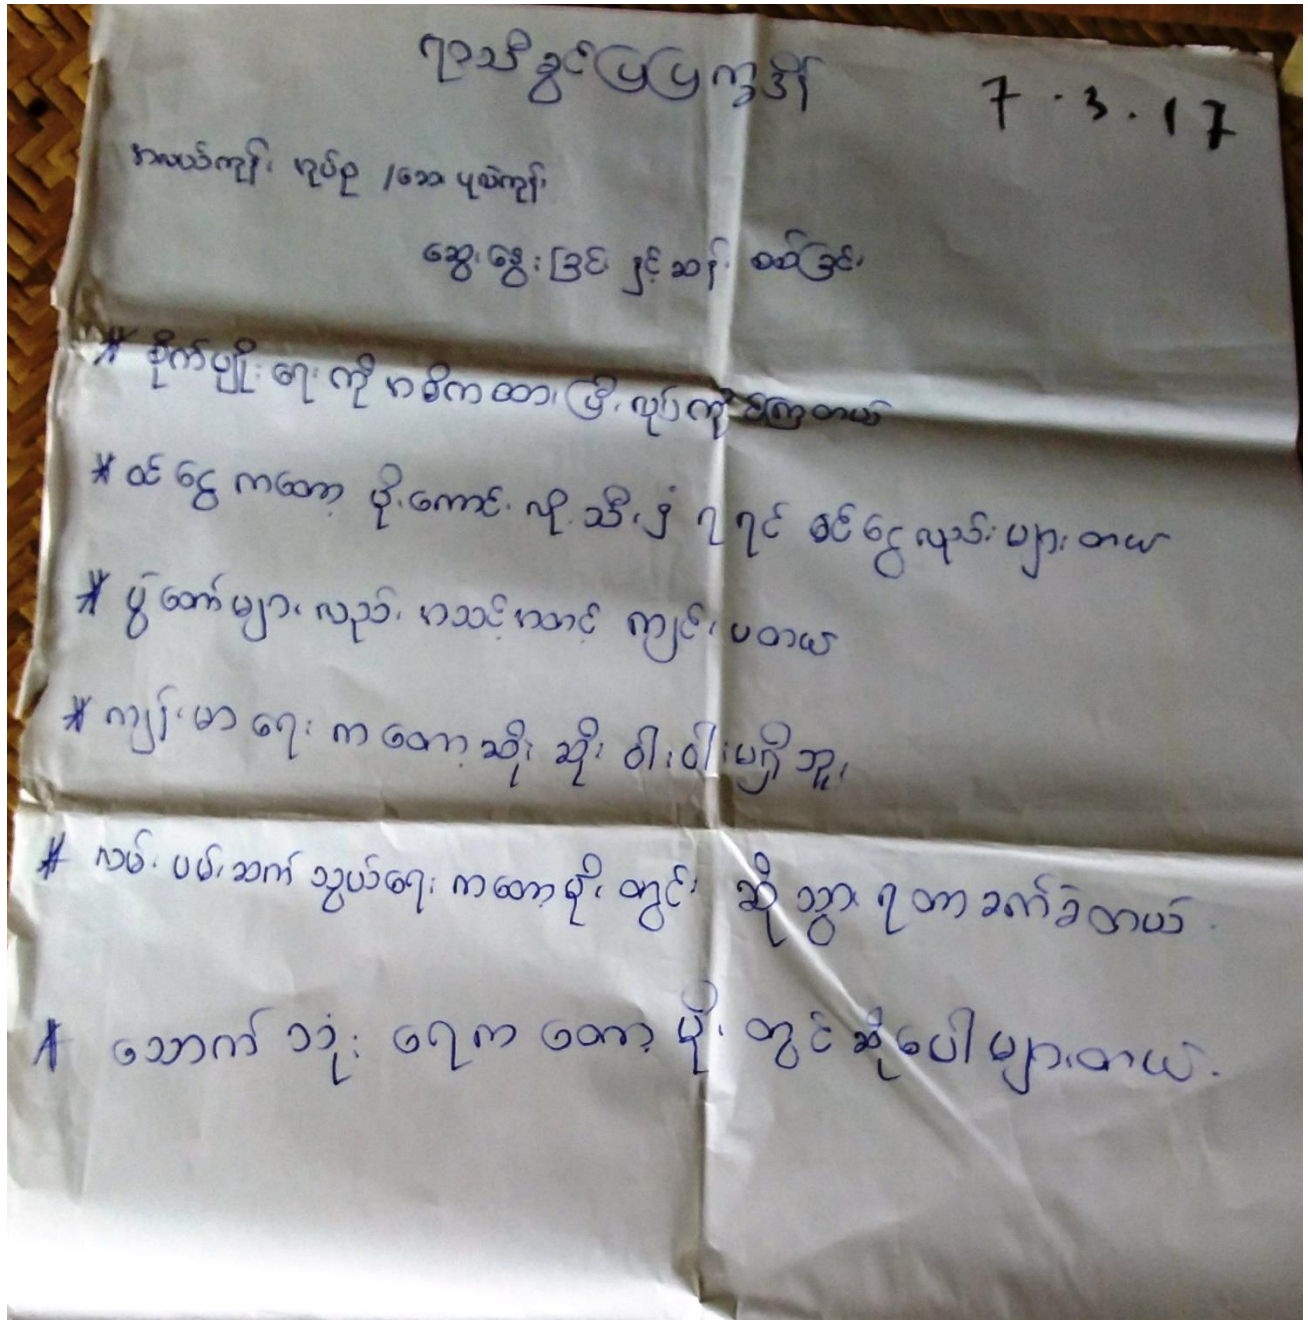 ရာသီခွင်ပြပြက္ခဒိန် 7.3.17
အလယ်ကုန်း အုပ်စု / အေးပုလဲကုန်း
ဆွေးနွေးခြင်း နှင့် ဆန်းစစ်ခြင်း
* စိုက်ပျိုးရေးကို အဓိကထားပြီး လုပ်ကိုင်ကြတယ်
* ဝင်ငွေကတော့ မိုးကောင်းလို့ သီးနှံရရင် ဝင်ငွေလည်းများတယ်
* ပွဲတော်များလည်း အသင့်အတင့် ကျင်းပတယ်
* ကျန်းမာရေးကတော့ ဆိုးဆိုးဝါးဝါးမရှိဘူး
* လမ်းပမ်းဆက်သွယ်ရေးကတော့ မိုးတွင်းဆို သွားရတာခက်ခဲတယ်.
* သောက်သုံးရေကတော့ မိုးတွင်ဆိုပေါများတယ်.